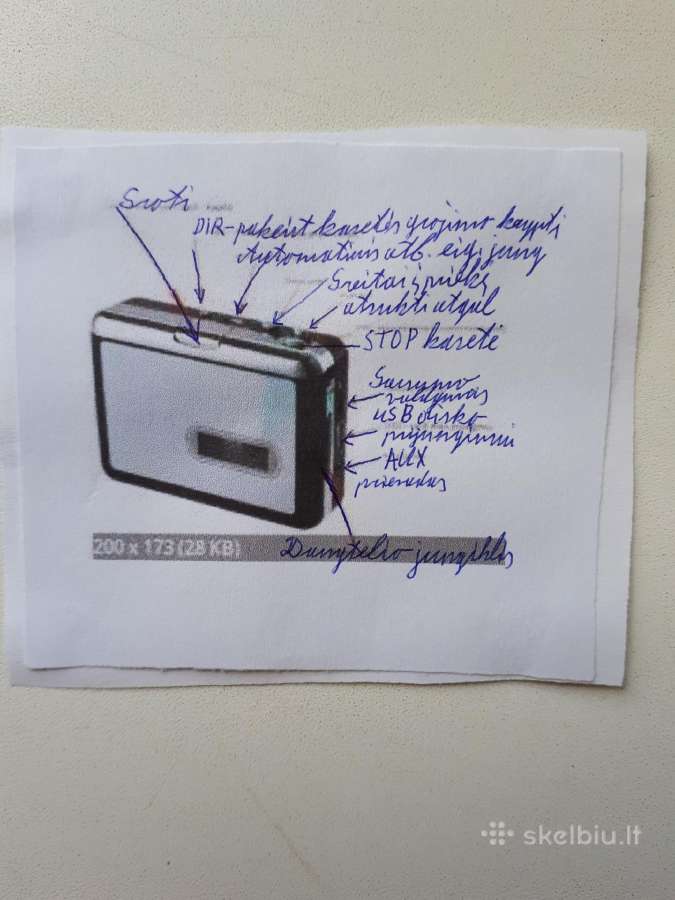 DIR-pakeist kasetės grojimo kryptį
Automatinis atb. eig. jung
Greitai į priekį
atsukti atgal
STOP kasetė
Garsumo
valdymas
USB disko
prijungimui
AUX
prievadas
200 x 173 (28 KB)
Dangtelio jungiklis
skelbiu.lt